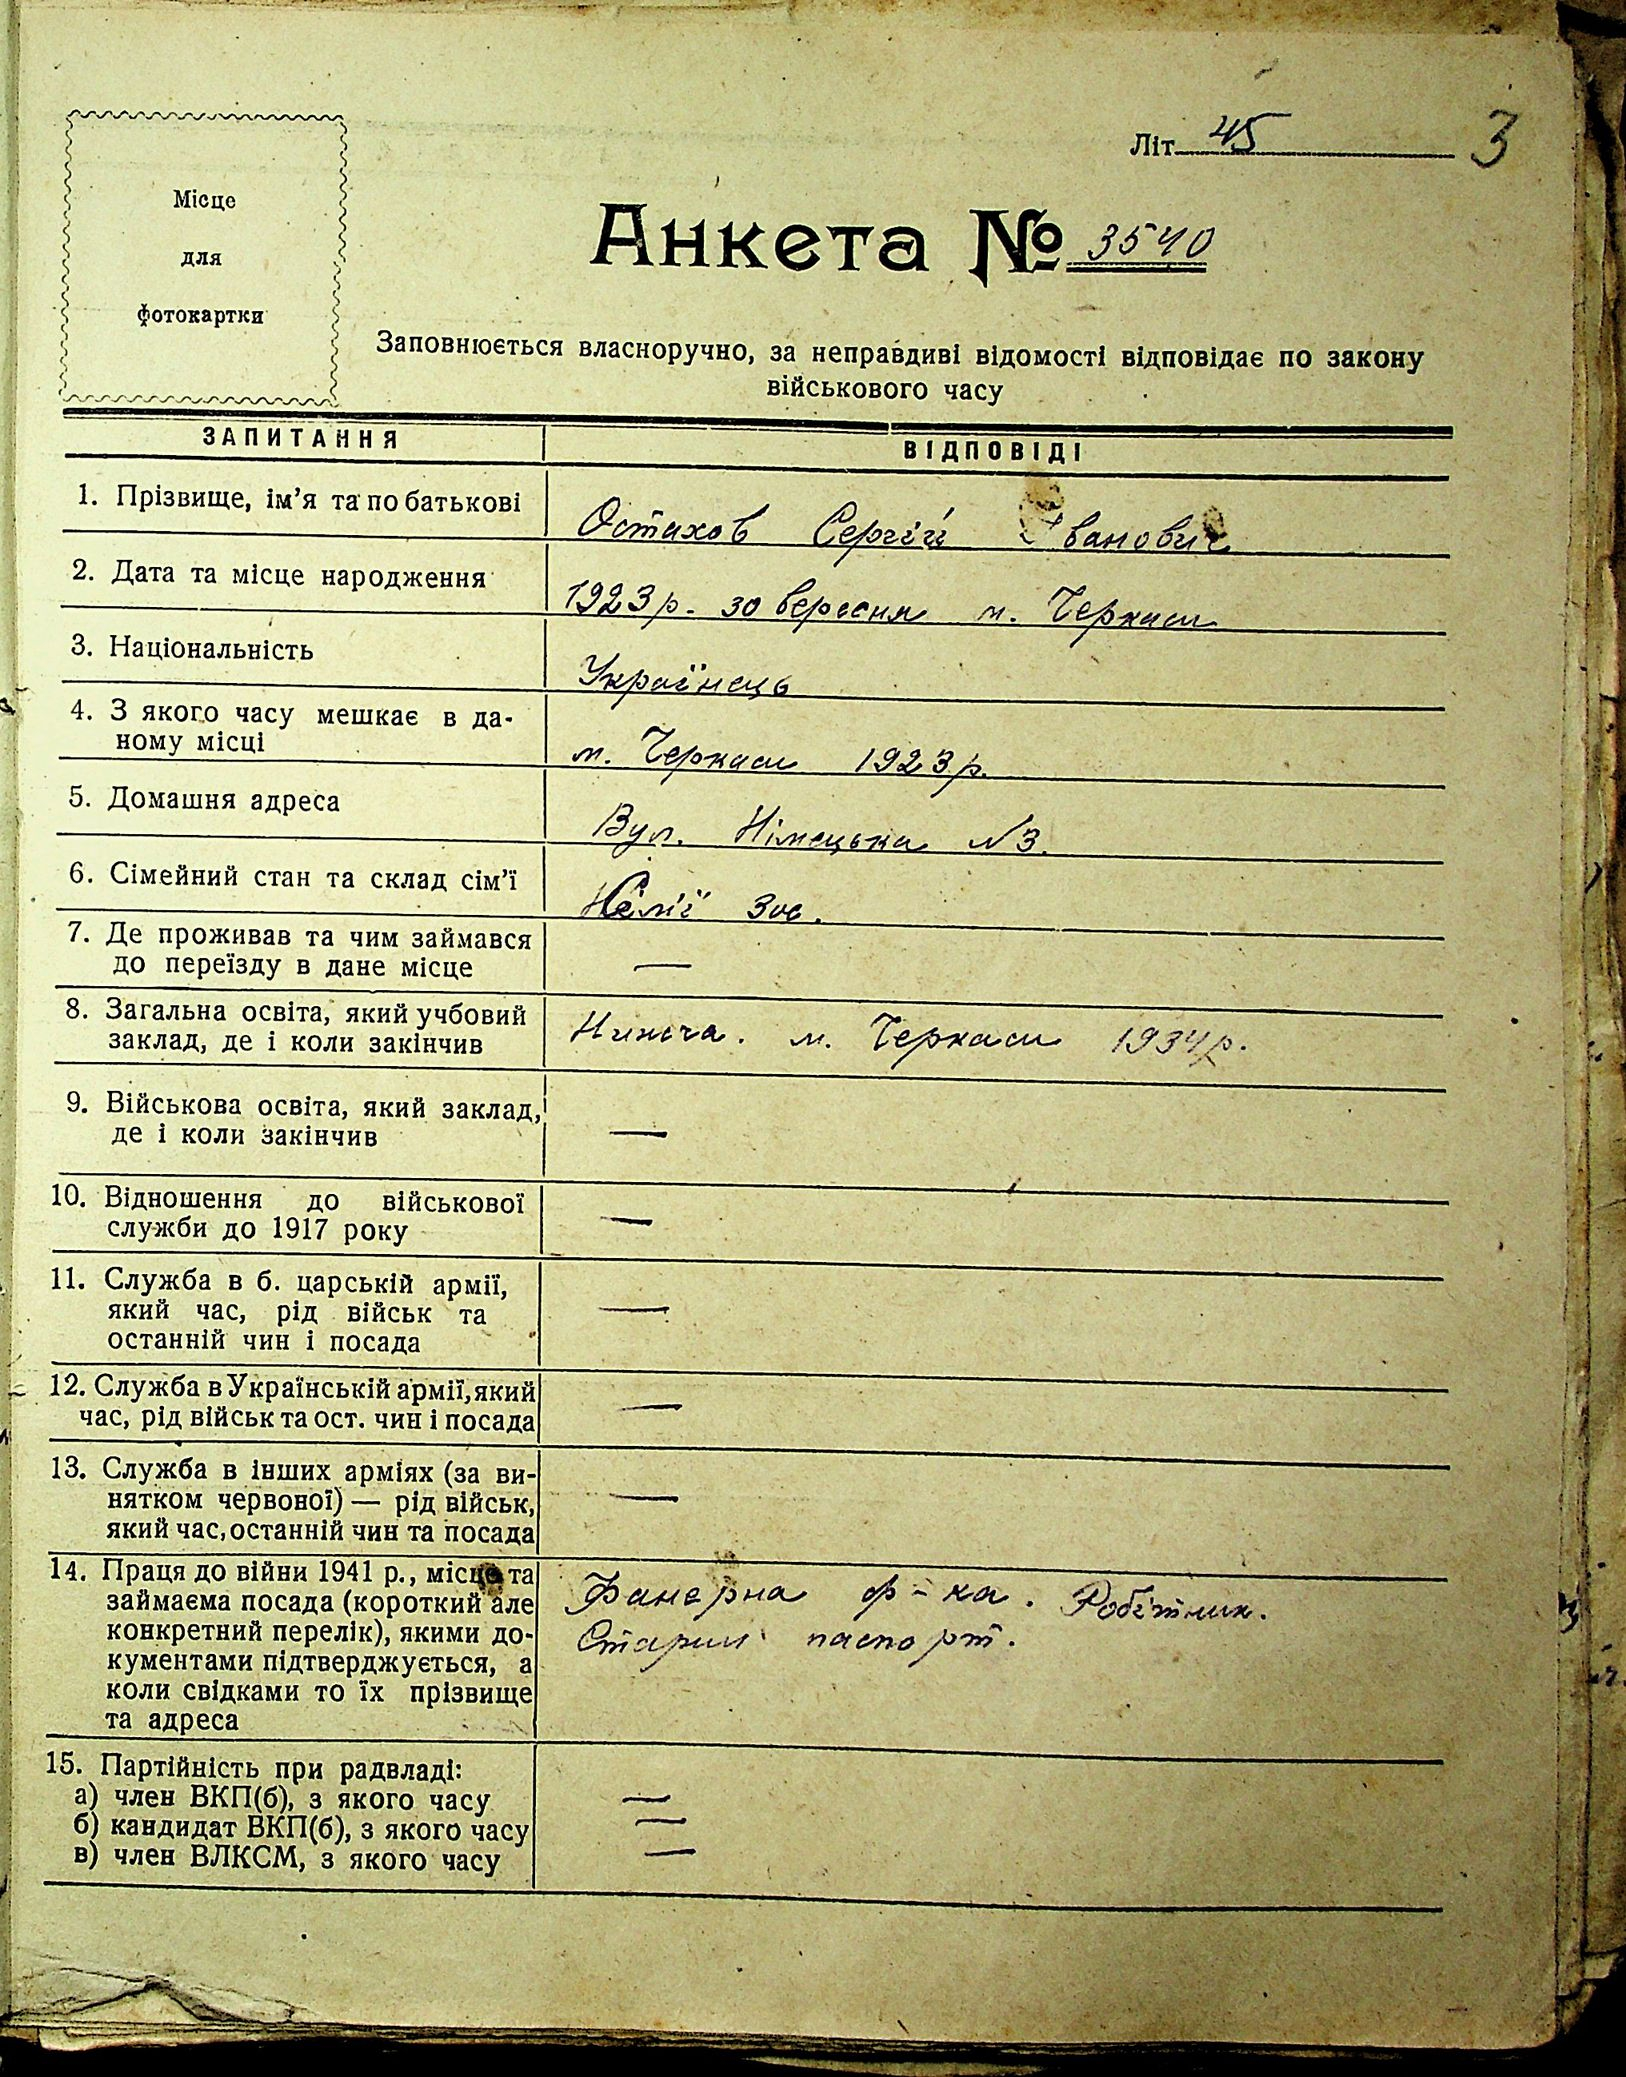 Літ 45
3
Місце
для
фотокартки
Анкета № 3540
Заповнюється власноручно, за неправдиві відомості відповідає по закону
військового часу
ЗАПИТАННЯ ВІДПОВІДІ
1. Прізвище, ім'я та по батькові Остахов Сергій Іванович
2. Дата та місце народження 1923 р. 30 вересня м. Черкаси
3. Національність Українець
4. З якого часу мешкає в да-
ному місці м. Черкаси 1923 р.
5. Домашня адреса Вул. Німецька №3.
6. Сімейний стан та склад сім'ї
7. Де проживав та чим займався
до переїзду в дане місце —
8. Загальна освіта, який учбовий
заклад, де і коли закінчив м. Черкаси 1934 р.
9. Військова освіта, який заклад,
де і коли закінчив —
10. Відношення до військової
служби до 1917 року —
11. Служба в б. царській армії,
який час, рід військ та
останній чин і посада —
12. Служба в Українській армії, який
час, рід військ та ост. чин і посада —
13. Служба в інших арміях (за ви-
нятком червоної) — рід військ,
який час, останній чин та посада —
14. Праця до війни 1941 р., місце та
займаєма посада (короткий але
конкретний перелік), якими до-
кументами підтверджується, а
коли свідками то їх прізвище
та адреса
Фанерна ф-ка. Робітник.
Старий паспорт.
15. Партійність при радвладі:
а) член ВКП(б), з якого часу —
б) кандидат ВКП(б), з якого часу —
в) член ВЛКСМ, з якого часу —